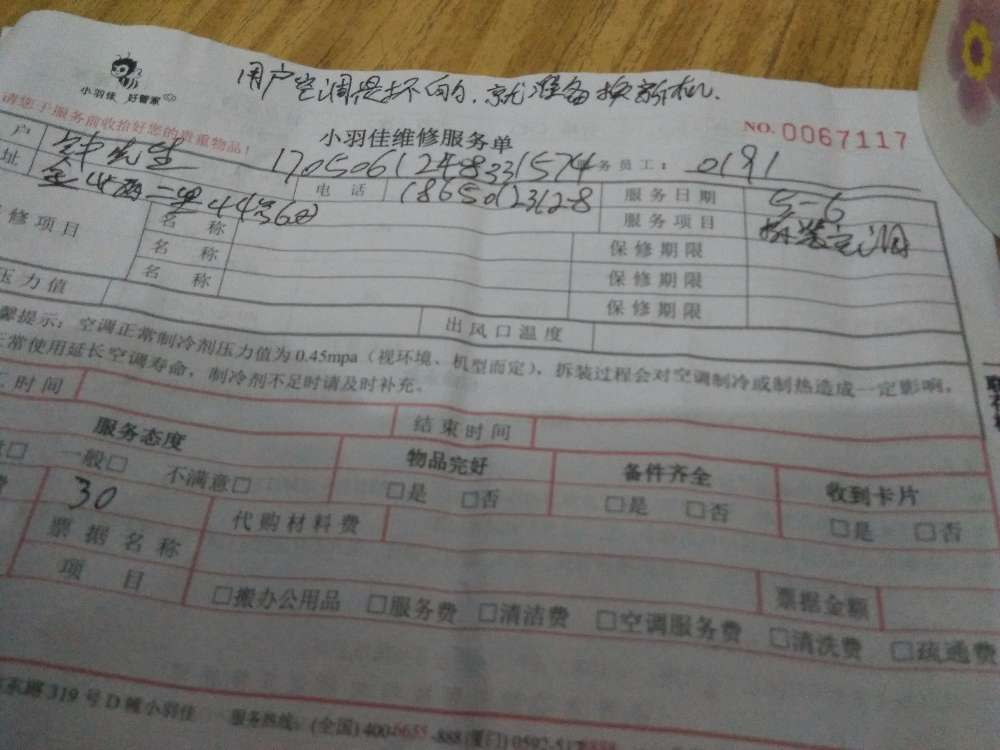 用户空调是坏的,就准备换新机.
小羽佳 好管家
请您于服务前收拾好您的贵重物品!
小羽佳维修服务单
NO. 0067117
户 先生 1705061248331574 务员工: 0191
址 二里44号602 电 话 18650123128 服务日期 5-6
修项目 名 称 服务项目 拆装空调
名 称 保修期限
名 称 保修期限
保修期限
压力值 出风口温度
馨提示:空调正常制冷剂压力值为0.45mpa(视环境、机型而定),拆装过程会对空调制冷或制热造成一定影响,
正常使用延长空调寿命,制冷剂不足时请及时补充。
时间 结束时间
服务态度 物品完好 备件齐全 收到卡片
□ 一般□ 不满意□ □是 □否 □是 □否 □是 □否
费 30 代购材料费
票据名称 票据金额
项 目 □搬办公用品 □服务费 □清洁费 □空调服务费 □清洗费 □疏通费
319号D幢小羽佳 服务热线:(全国)400-6655-888(厦门)0592-51